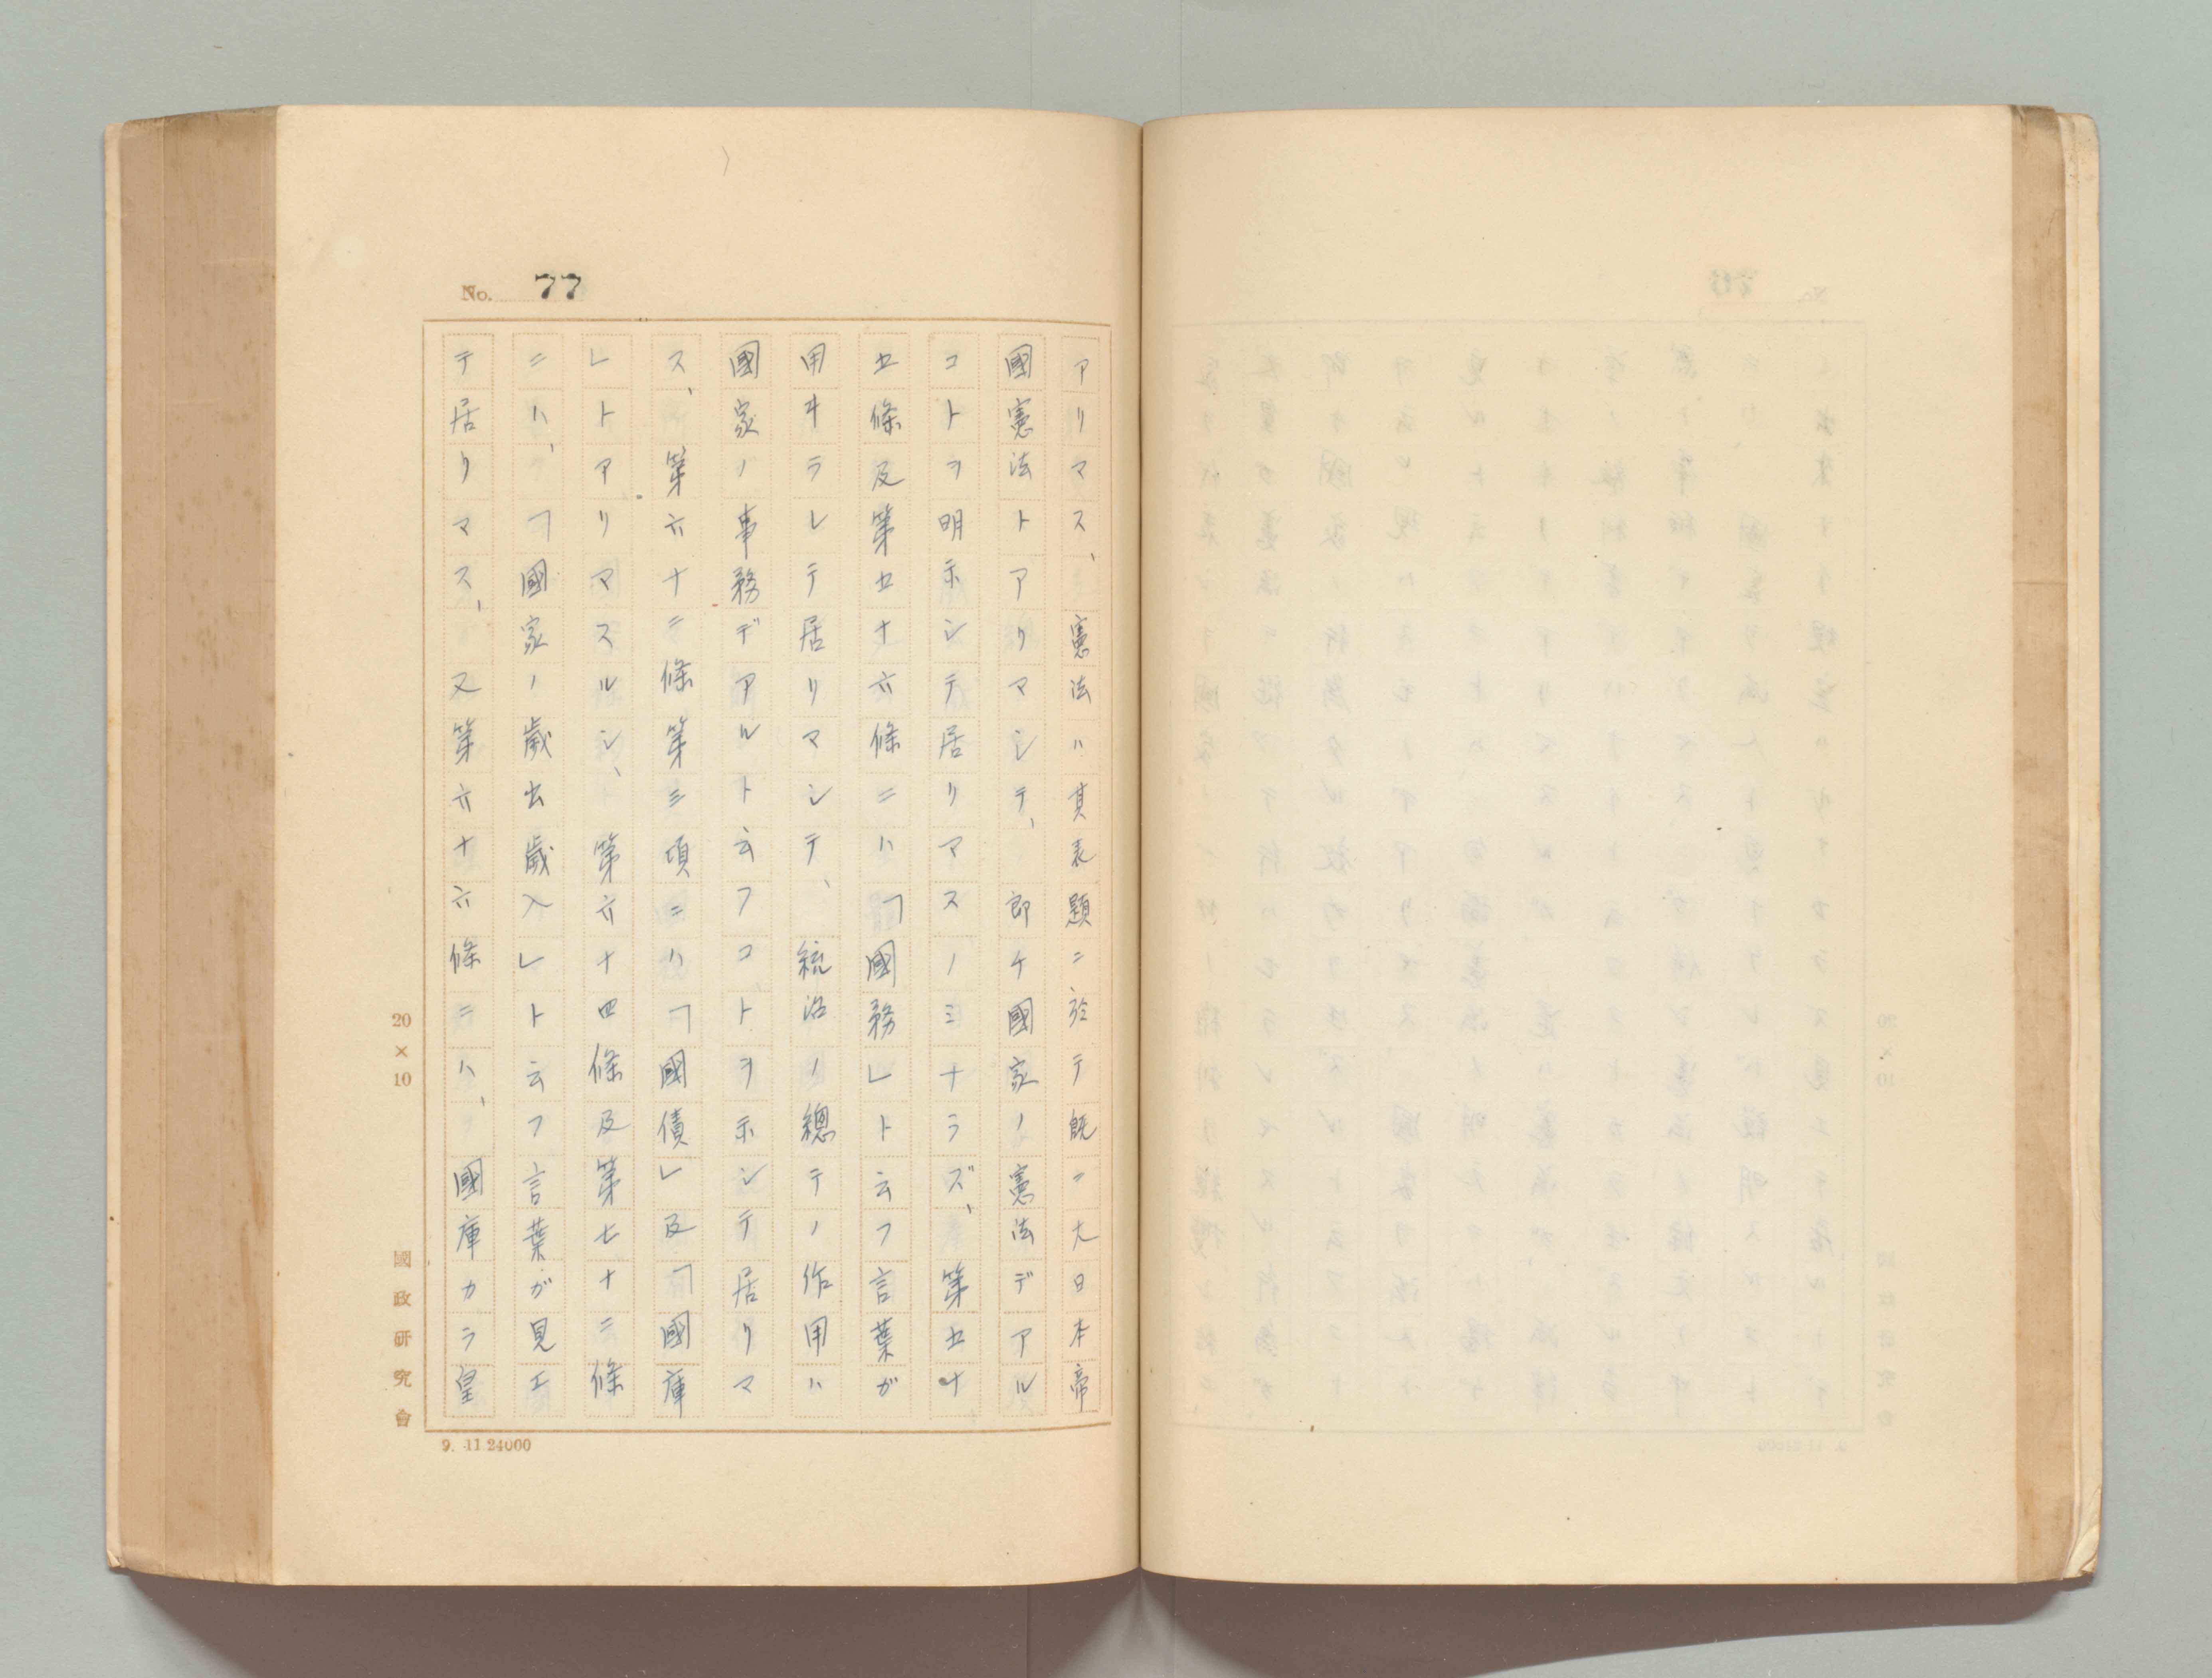 No. 77
アリマス、憲法ハ其表題ニ於テ既ニ大日本帝
國憲法トアリマシテ、即チ國家ノ憲法デアル
コトヲ明示シテ居リマスノミナラズ、第五十
五條及第五十六條ニハ「國務」ト云フ言葉ガ
用ヰラレテ居リマシテ、統治ノ總テノ作用ハ
國家ノ事務デアルト云フコトヲ示シテ居リマ
ス、第六十二條第三項ニハ「國債」及「國庫
」トアリマスルシ、第六十四條及第七十二條
ニハ、「國家ノ歳出歳入」ト云フ言葉ガ見エ
テ居リマス、又第六十六條ニハ、國庫カラ皇
20×10
國政研究會
9. 11.24000